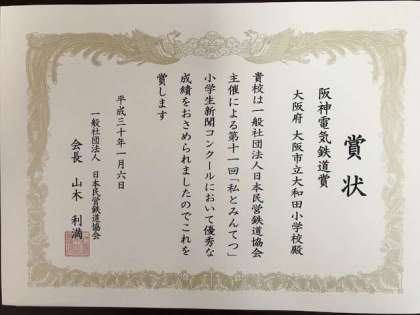 賞状
阪神電気鉄道賞
大阪府 大阪市立大和田小学校殿
貴校は一般社団法人日本民営鉄道協会
主催による第十一回「私とみんてつ」
小学生新聞コンクールにおいて優秀な
成績をおさめられましたのでこれを
賞します
平成三十年一月六日
一般社団法人 日本民営鉄道協会
会長 山木 利満